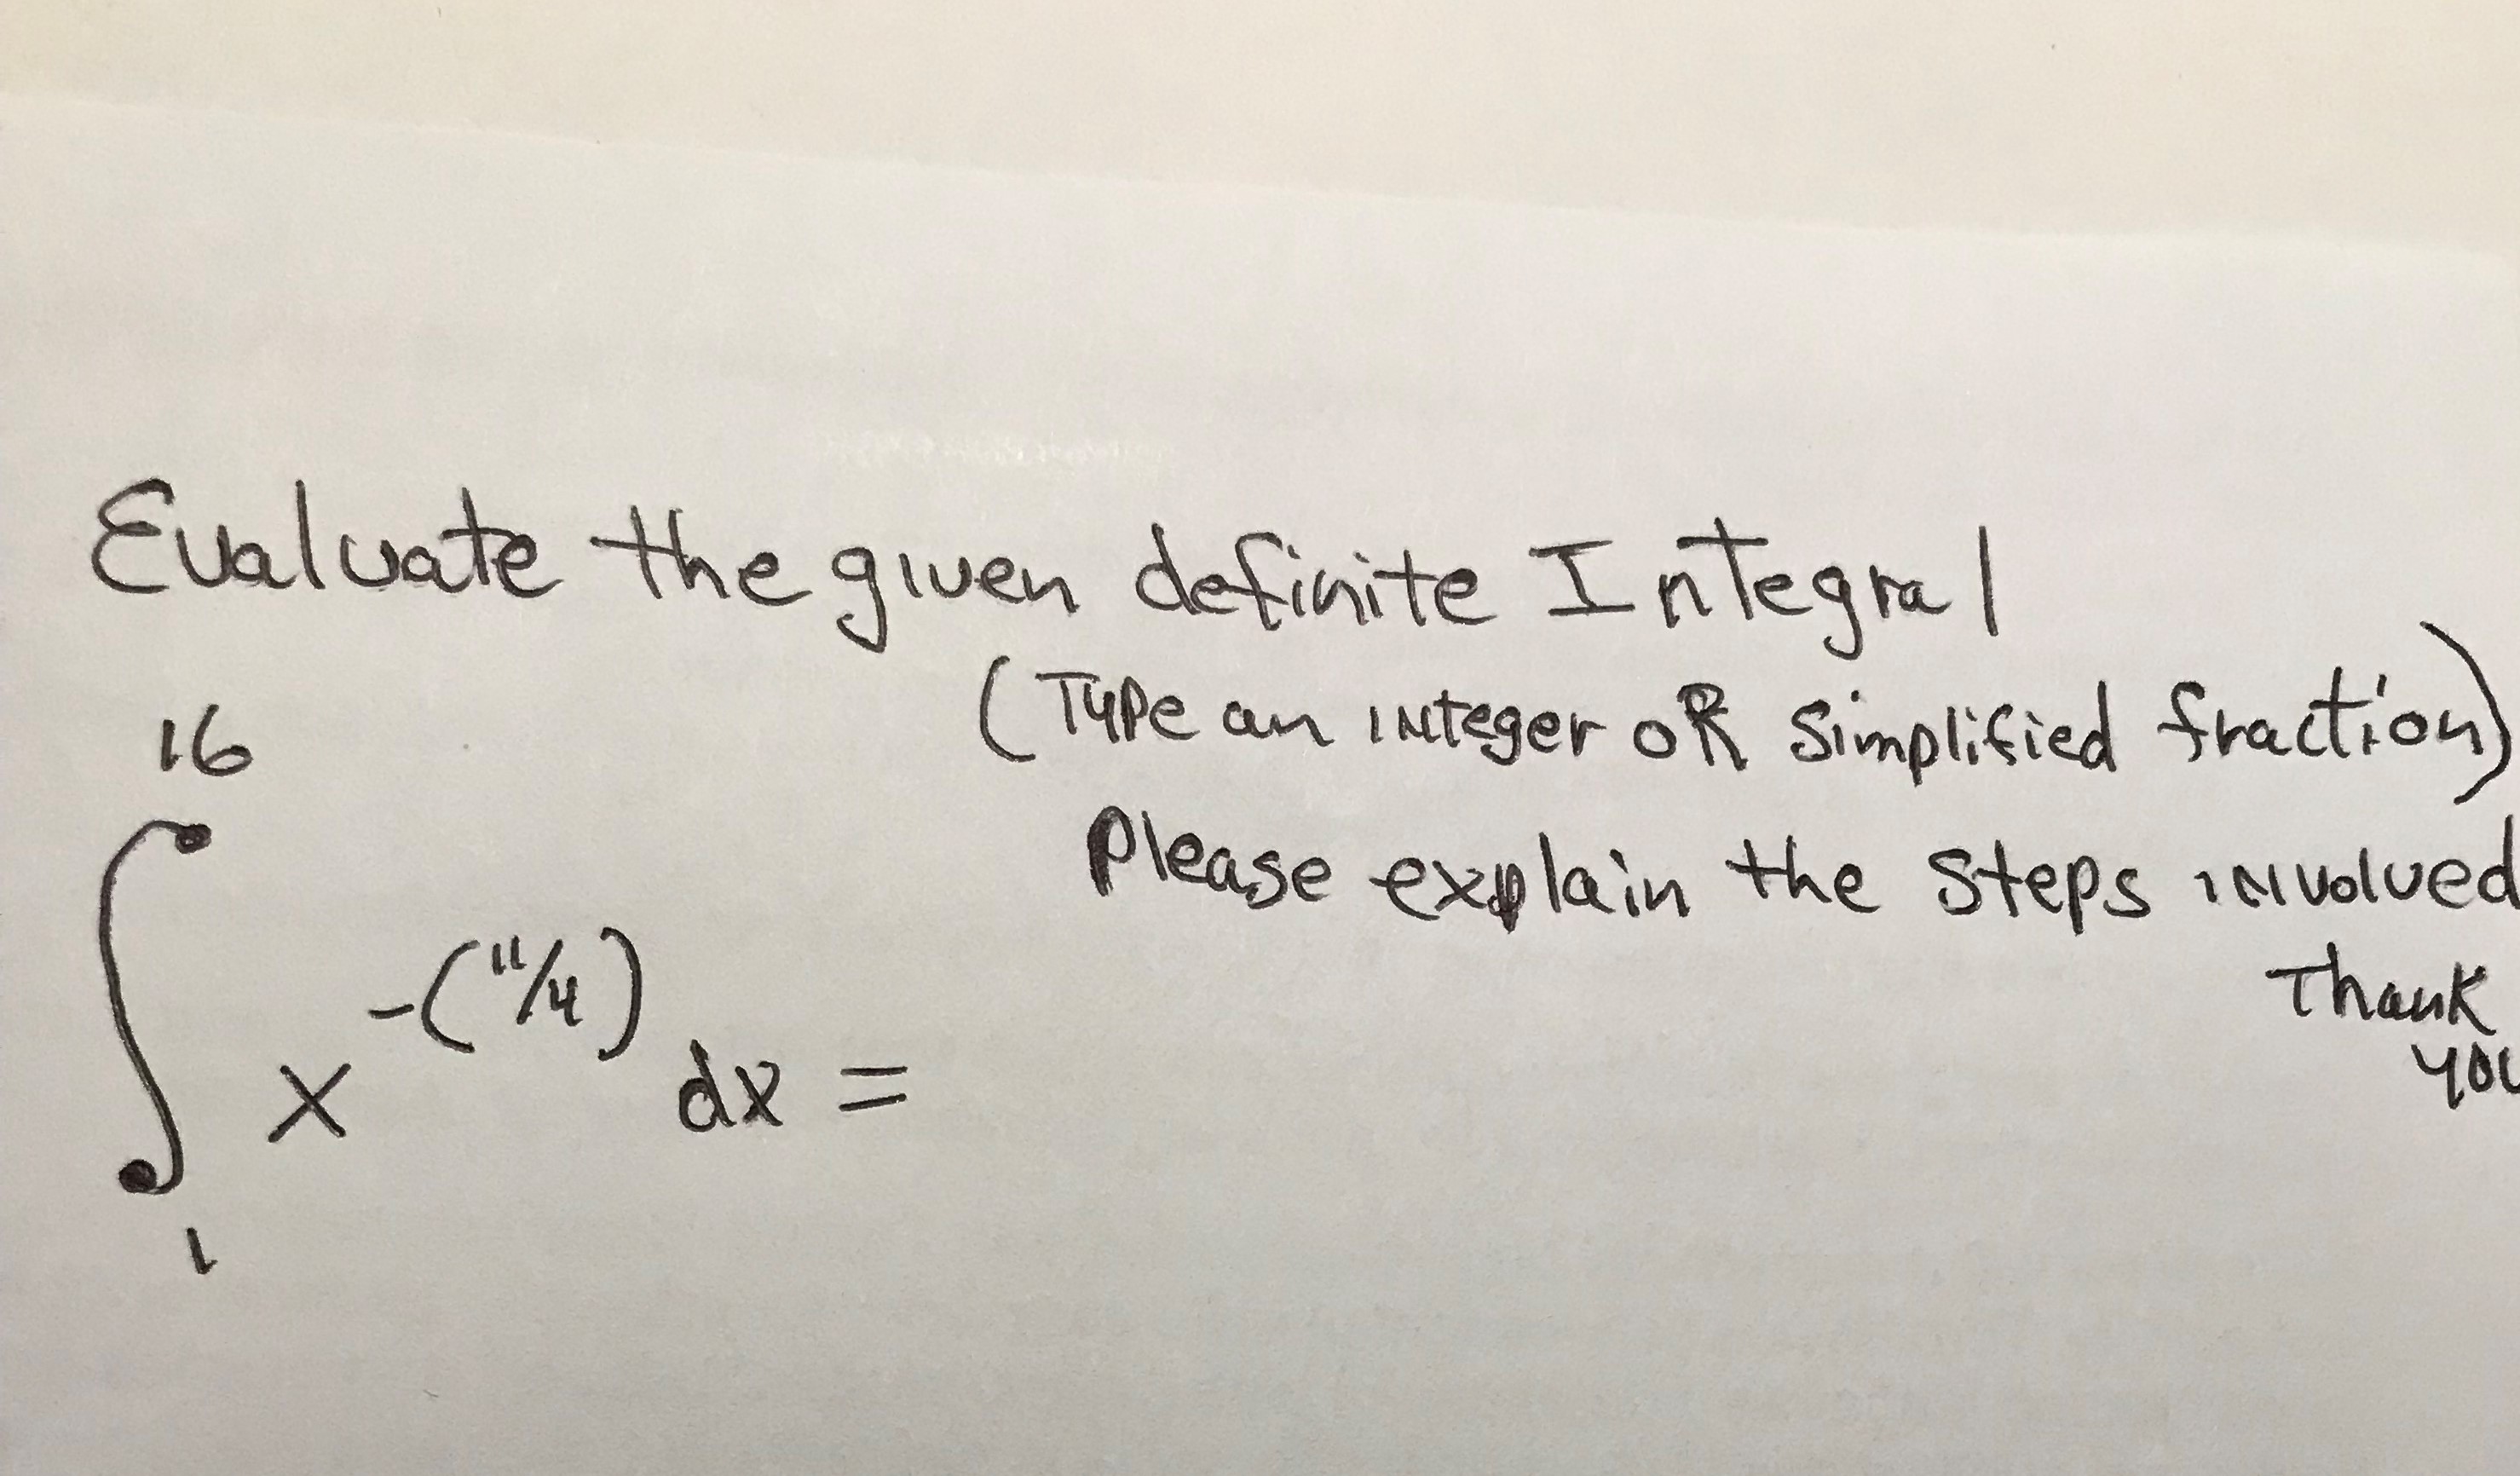 Evaluate the given definite Integral
(Type an integer or simplified fraction)
Please explain the steps involved
Thank
you
16
∫ x^-(11/4) dx =
1